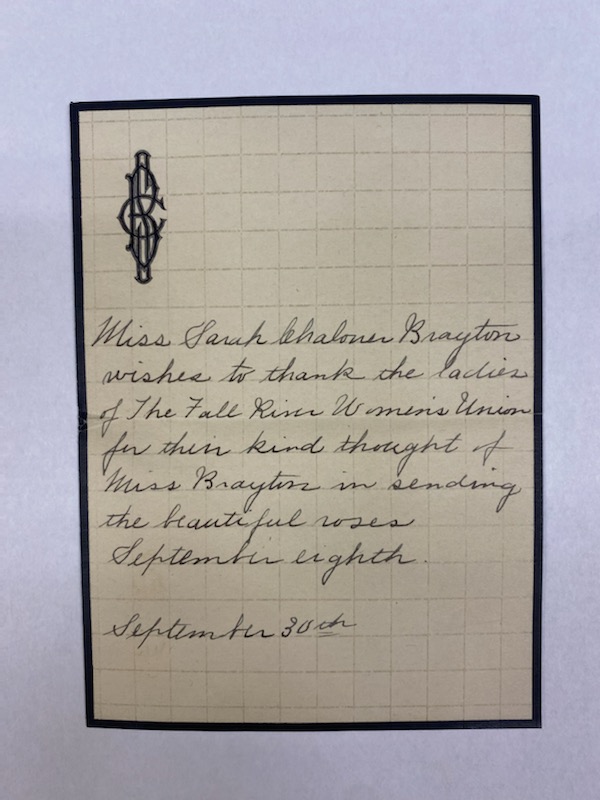 Miss Sarah Chaloner Brayton
wishes to thank the ladies
of The Fall River Women's Union
for their kind thought of
Miss Brayton in sending
the beautiful roses
September eighth.
September 30th